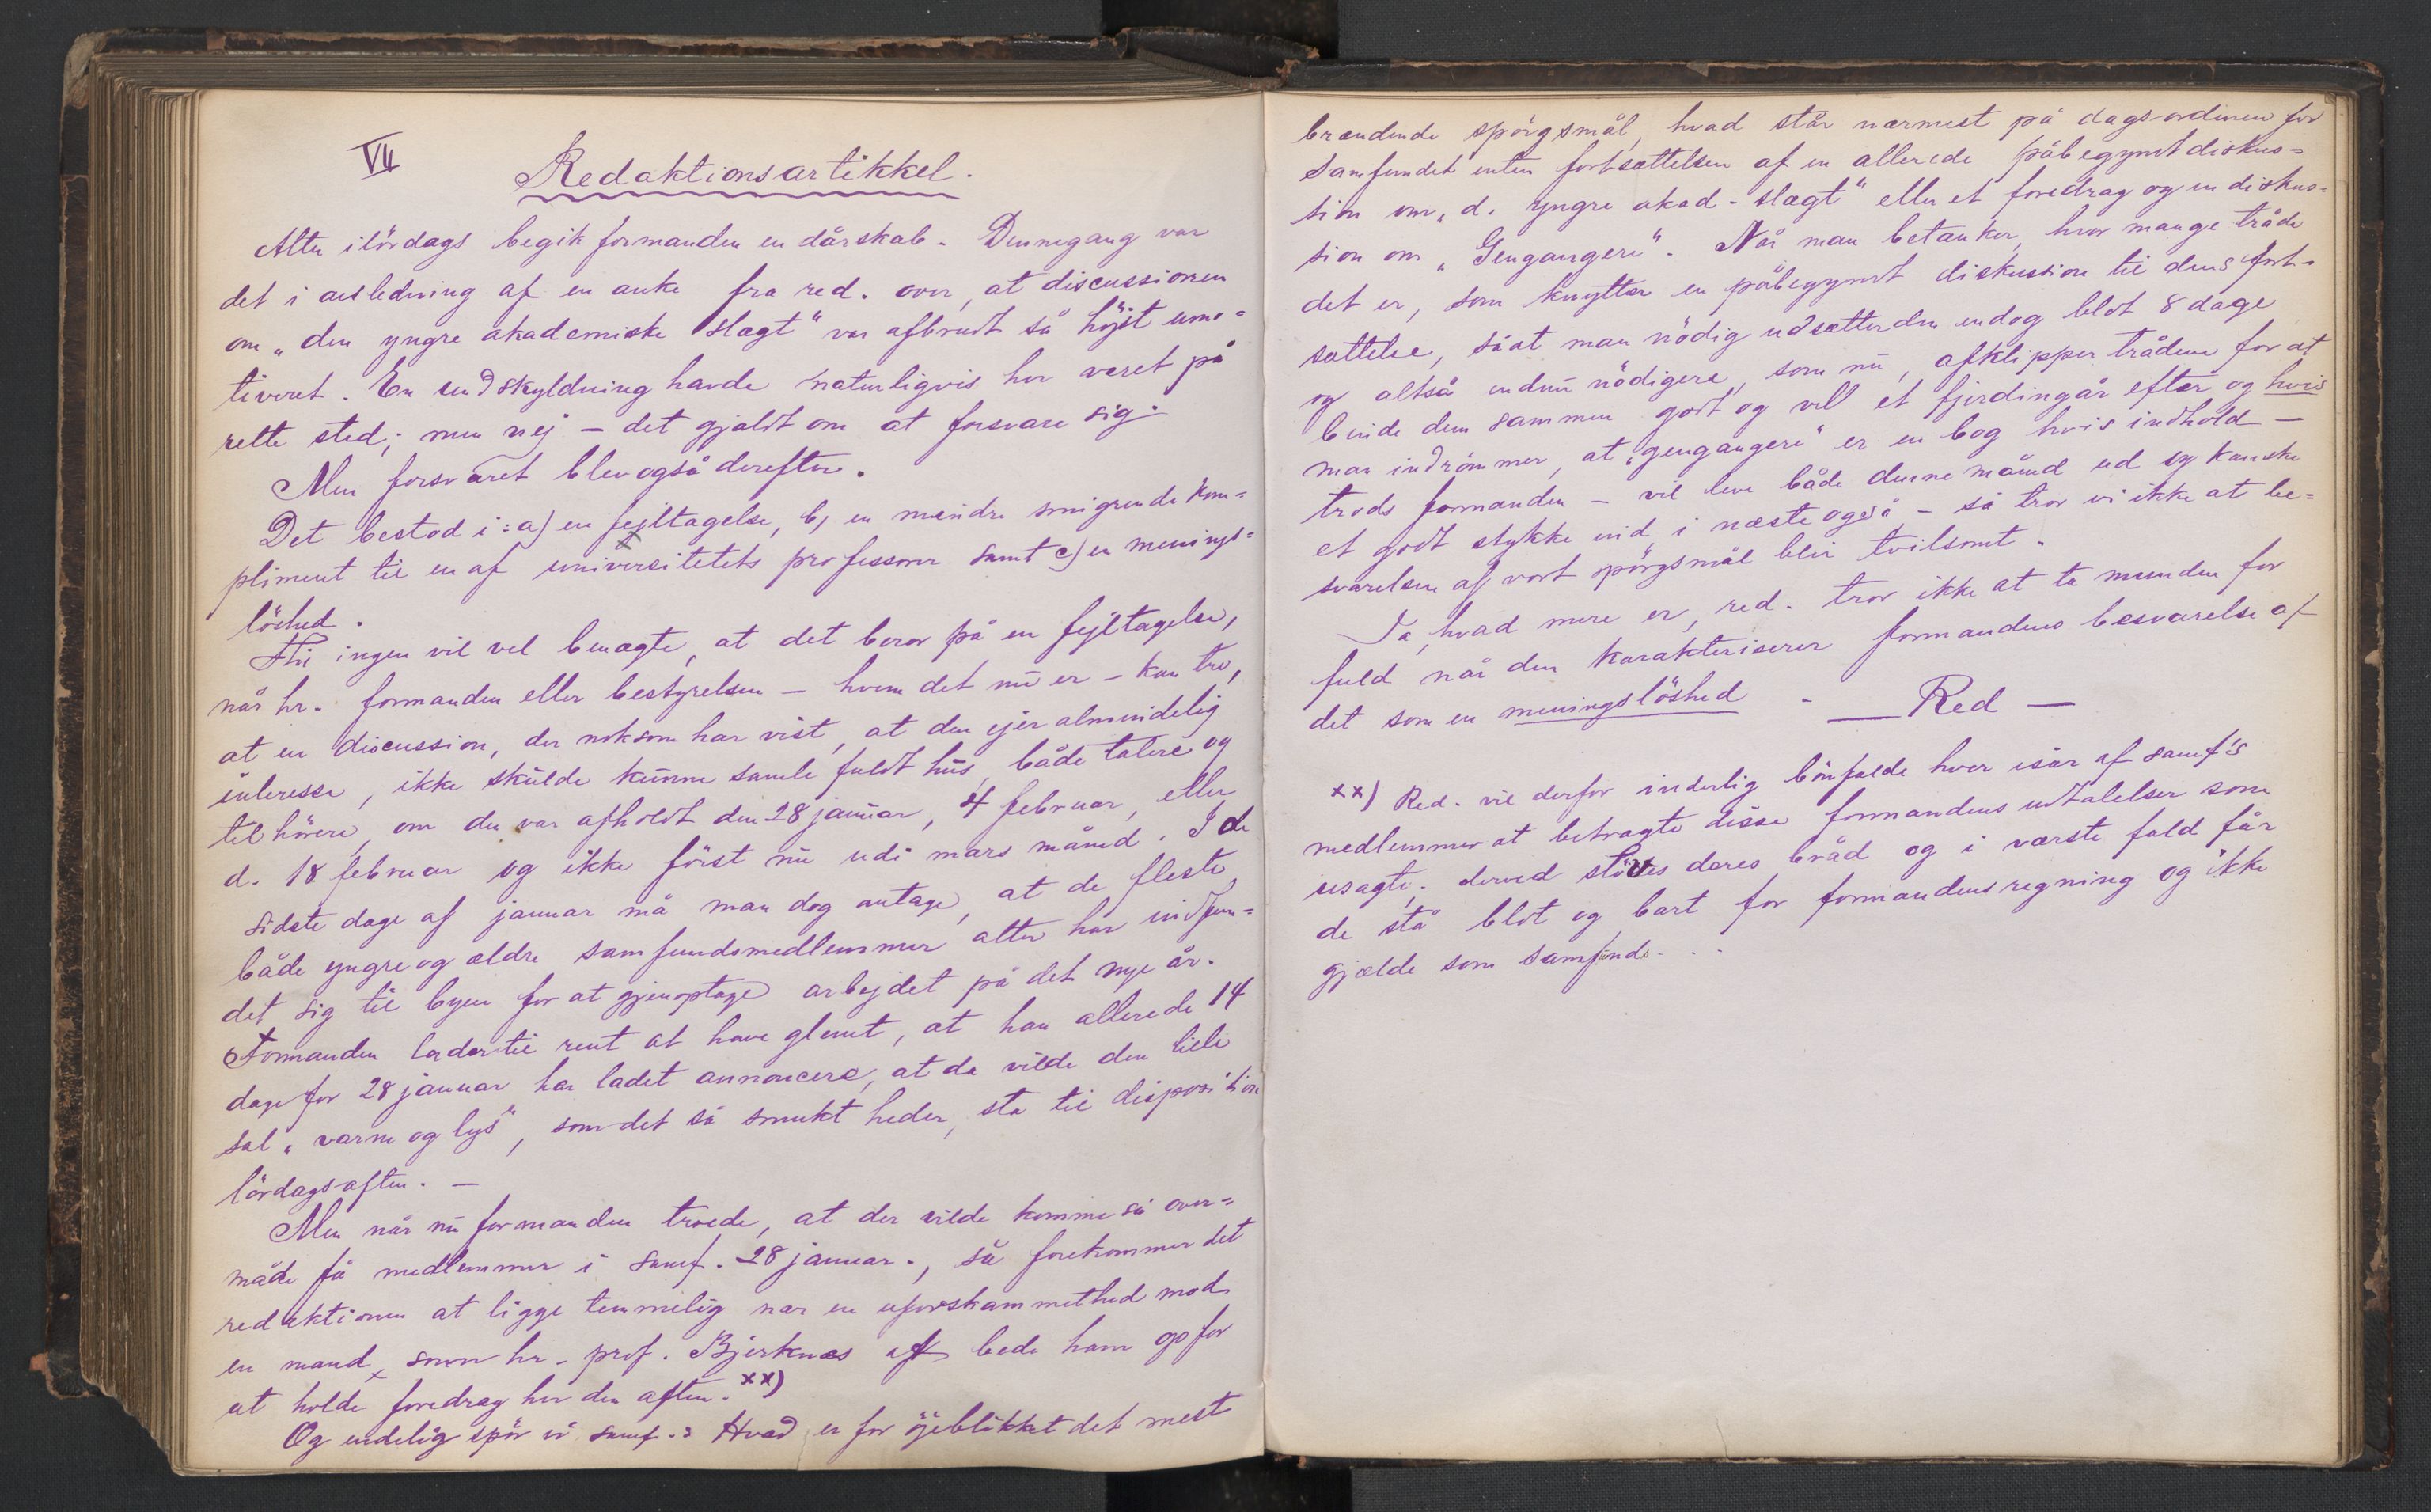 VII
Redaktionsartikkel.
Atter ilördags begik formanden en dårskab. Dennegang var
det i anledning af en anke fra red. over, at discussionen
om „den yngre akademiske slægt" var afbrudt så höjst umo=
tiveret. En undskyldning havde naturligvis her været på
rette sted; men nej – det gjaldt om at forsvare sig.
Men forsvaret blev også derefter.
Det bestod i: a) en fejltagelse, b) en mindre smigrende kom=
pliment til en af universitetets professorer samt c) en menings=
löshed.
Thi ingen vil vel benægte, at det beror på en fejltagelse,
når hr. formanden eller bestyrelsen – hvem det nu er – kan tro,
at en discussion, der noksom har vist, at den ejer almindelig
interesse, ikke skulde kunne samle fuldt hus, både talere og
tilhörere, om den var afholdt den 28 januar, 4 februar, eller
d. 18 februar og ikke först nu udi mars måned. I de
sidste dage af januar må man dog antage, at de fleste
både yngre og ældre samfundsmedlemmer atter har indfun=
det sig til byen for at gjenoptage arbejdet på det nye år.
Formanden lader til rent at have glemt, at han allerede 14
dage for 28 januar har ladet annoncere, at da vilde den lille
sal „varm og lys", som det så smukt heder, stå til disposition
lördagsaften. –
Men når nu formanden troede, at der vilde komme så over=
måde få medlemmer i samf. 28 januar., så forekommer det
redaktionen at ligge temmelig nær en uforskammethed mod
en mand, som hr. prof. Bjerknæs at bede ham go for
at holde foredrag her den aften. xx)
Og endelig spör vi samf.: Hvad er for öjeblikket det mest
brændende spörgsmål, hvad står nærmest på dagsordenen for
samfundet enten fortsættelsen af en allerede påbegyndt diskus=
sion om „d. yngre akad. slægt" eller et foredrag og en diskus=
sion om „Gengangere". Når man betænker, hvor mange tråde
det er, som knytter en påbegyndt diskussion til dens fort=
sættelse, såat man nödig udsætter den endog blot 8 dage
og altså endnu nödigere, som nu, afklipper trådene for at
binde dem sammen godt og vel et fjerdingår efter og hvis
man indrömmer, at „gengangere" er en bog hvis indhold –
trods formanden – vil leve både denne måned ud og kanske
et godt stykke ind i næste også – så tror vi ikke at be=
svarelsen af vort spörgsmål blir tvilsomt.
Ja, hvad mere er, red. tror ikke at ta munden for
fuld når den karakteriserer formandens besvarelse af
det som en meningslöshed.
— Red —
xx) Red. vil derfor inderlig bönfalde hver især af samf's
medlemmer at betragte disse formandens udtalelser som
usagte. derved stöves deres bråd og i værste fald får
de stå blot og bart for formandens regning og ikke
gjælde som samfunds...